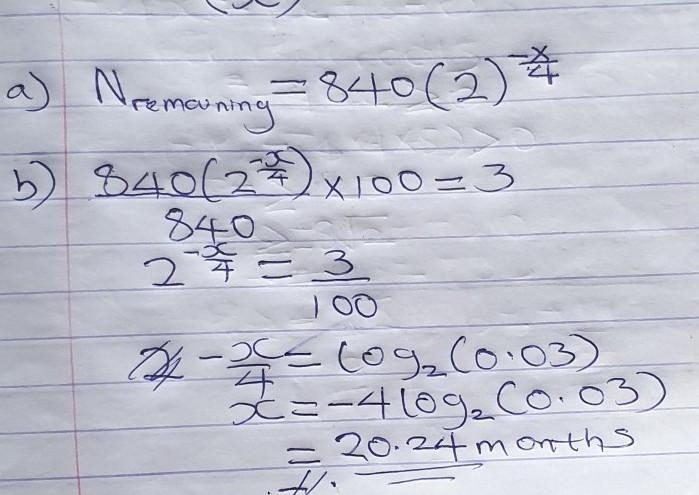 a) Nremaining = 840(2)^(-x/4)
b) 840(2^(-x/4)) × 100 = 3
840
2^(-x/4) = 3
100
-x/4 = log₂(0.03)
x = -4log₂(0.03)
= 20.24 months